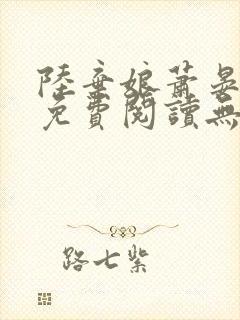 陸棄娘蕭晏
免費閱讀無
路七紫